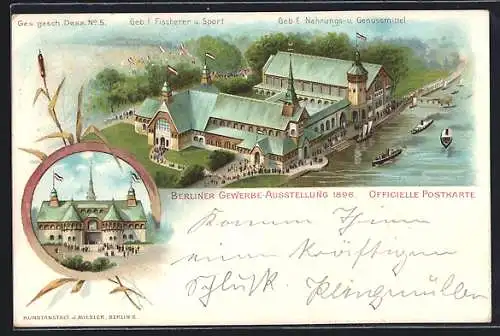 Ges. gesch. Dess. No. 5.
Geb. f. Fischerei u. Sport
Geb. f. Nahrungs- u. Genussmittel
BERLINER GEWERBE-AUSSTELLUNG 1896. OFFICIELLE POSTKARTE
Komm Ihnen
einen kräftigen
Schluk.
KUNSTANSTALT J. MIESLER, BERLIN S.